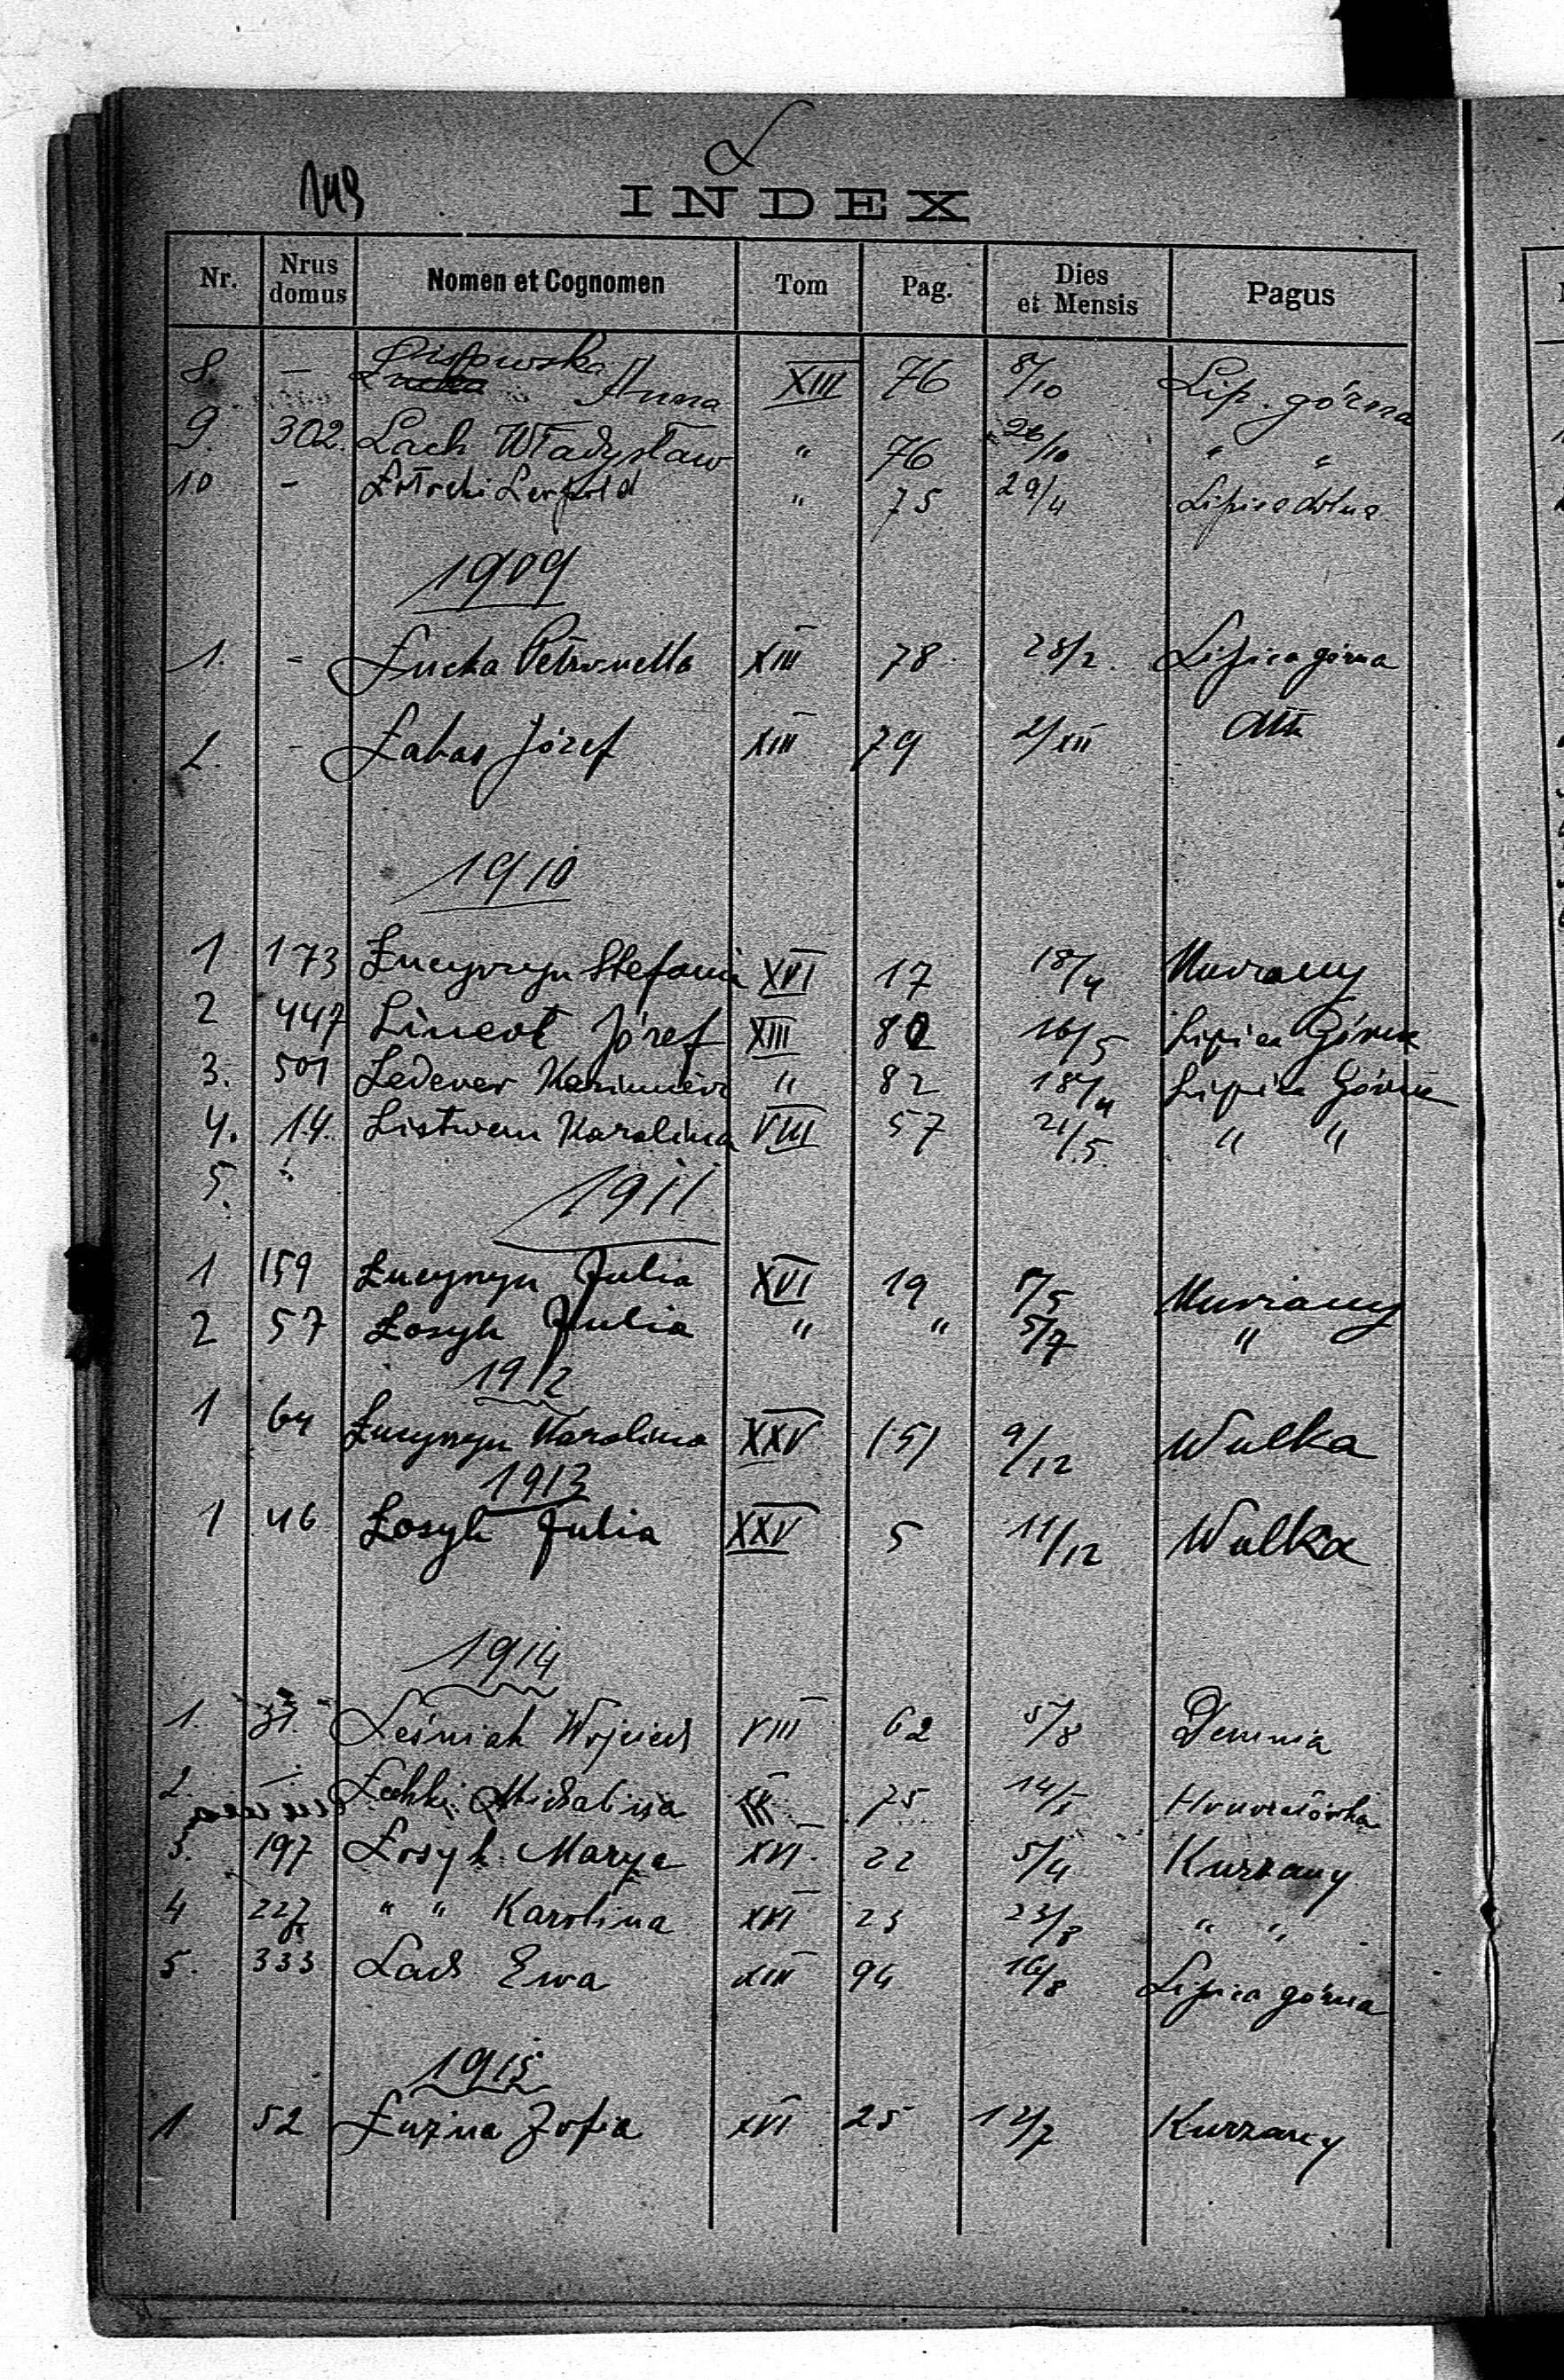 L
149
INDEX
Nr. Nrus domus Nomen et Cognomen Tom Pag. Dies et Mensis Pagus
8. — Anna XIII 76 8/10 Lip. górna
9. 302. Lach Władysław " 76 26/10 " "
10 - " 75 29/4 Lipica dolna
1909
1. - Łucka Petronella XIII 78 28/2. Lipica górna
2. - Łabas Józef XIII 79 2/XII dtto
1910
1 173 Stefania XVI 17 18/4
2 447 Lineot Józef XIII 82 16/5 Lipica Górna
3. 501 Lederer Kazimierz " 82 18/4 Lipica Górna
4. 14. Listwan Karolina VIII 57 21/5. " "
5.
1911
1 159 Julia XVI 19
2 57 Łosyk Julia " " 5/7 "
1912
1 64 Karolina XXV 151 9/12 Wulka
1913
1 46 Łosyk Julia XXV 5 11/12 Wulka
1914
1. 37. Leśniak Wojciech VIII 62 5/8 Demnia
2. — Michalina 75
3. 197 Łosyk Marya XVI. 22 5/4 Kurzany
4 227 " " Karolina XVI 23 23/8 " "
5. 333 Lach Ewa XIII 94 16/8 Lipica górna
1915
1 52 Łuzna Zofia XVI 25 12/7 Kurzany